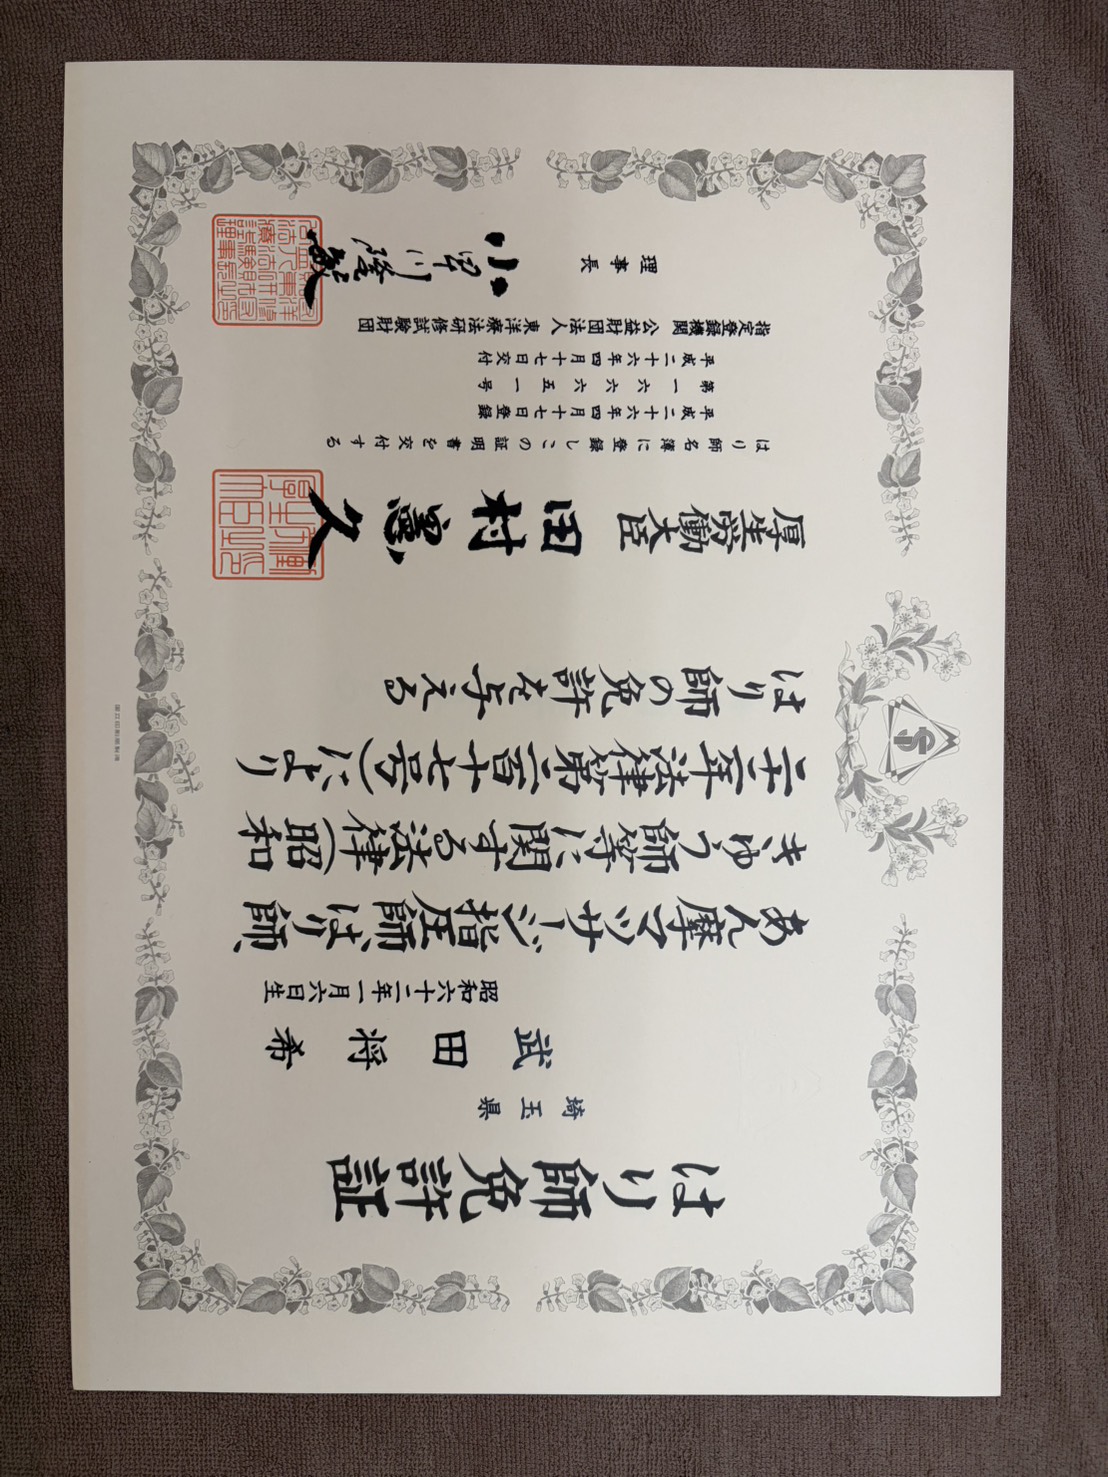 はり師免許証
埼玉県
武田将希
昭和六十二年一月六日生
あん摩マツサージ指圧師、はり師、
きゆう師等に関する法律(昭和
二十二年法律第二百十七号)により
はり師の免許を与える
厚生労働大臣 田村憲久
はり師名簿に登録しこの証明書を交付する
平成二十六年四月十七日登録
第一六六六五一号
平成二十六年四月十七日交付
指定登録機関 公益財団法人 東洋療法研修試験財団
理事長